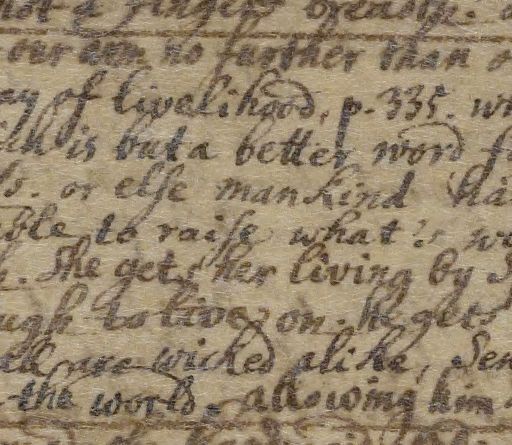 fingers
our own no further than
of livelihood, p. 335.
is but a better word
or else mankind
able to raise what is
She gets her living by
to live on. he gets
are wicked alike,
the world, allowing him